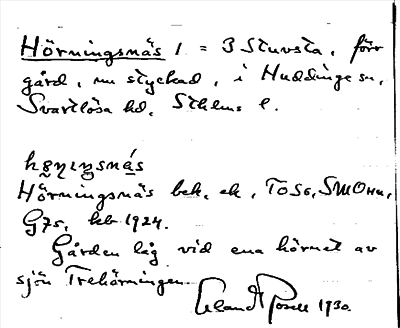 Hörningsnäs 1 = 3 Stuvsta, förr
gård, nu styckad, i Huddinge sn,
Svartlösa hd, Sthlms l.
Hörningsnäs bek. ek, TOSG, SMOHn,
G75, kb 1924.
Gården låg vid ena hörnet av
sjön Trehörningen.
1930.